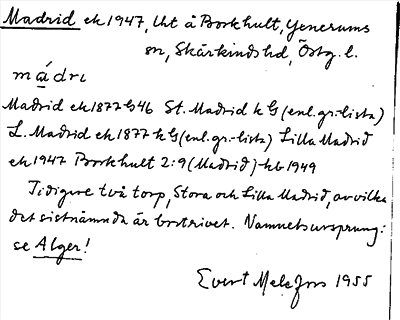 Madrid ek 1947, lht å Borkhult, Yxnerums
sn, Skärkinds hd, Östg. l.
mádri
Madrid ek 1877 G46 St. Madrid k G (enl. gr.-lista)
L. Madrid ek 1877 k G (enl. gr.-lista) Lilla Madrid
ek 1947 Borkhult 2:9 (Madrid) hb 1949
Tidigare två torp, Stora och Lilla Madrid, av vilka
det sistnämnda är bortrivet. Namnets ursprung:
se Alger!
Evert 1955